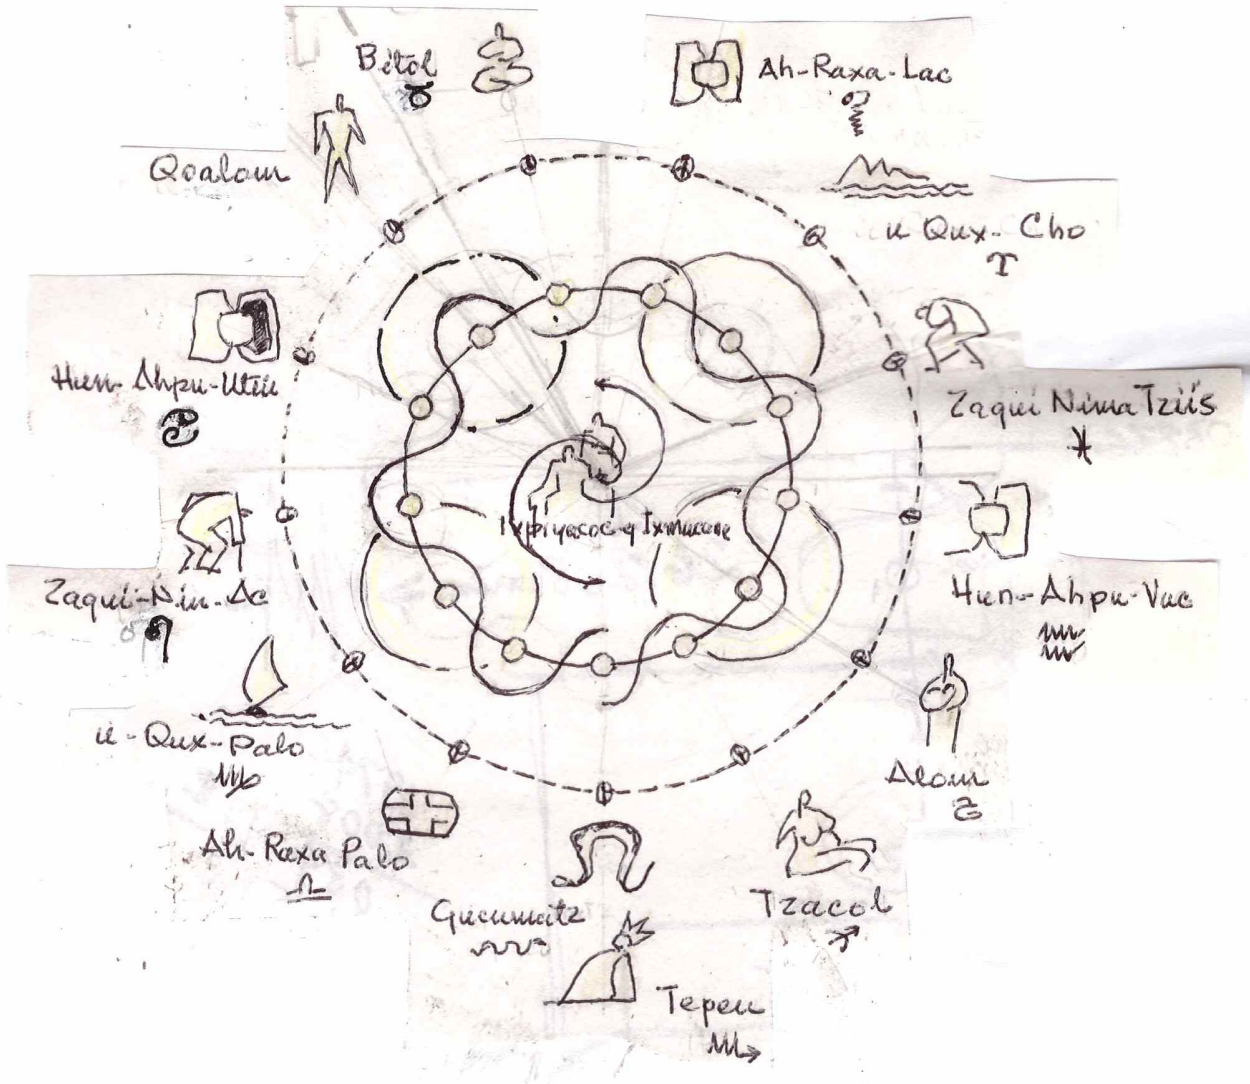 Bitol
Ah-Raxa-Lac
Qoalom
u Qux-Cho
Hun-Ahpu-Utiu
Zaqui Nima Tziis
Ixpiyacoc y Ixmucane
Zaqui-Nin-Ac
Hun-Ahpu-Vuc
u-Qux-Palo
Alom
Ah-Raxa Palo
Tzacol
Gucumatz
Tepeu